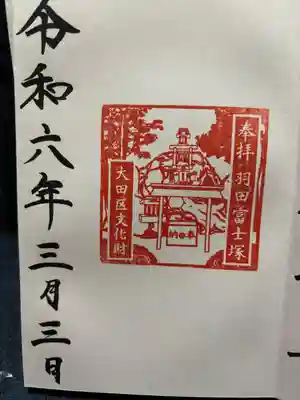 奉拝 羽田富士塚
奉納
大田区文化財
令和六年三月三日